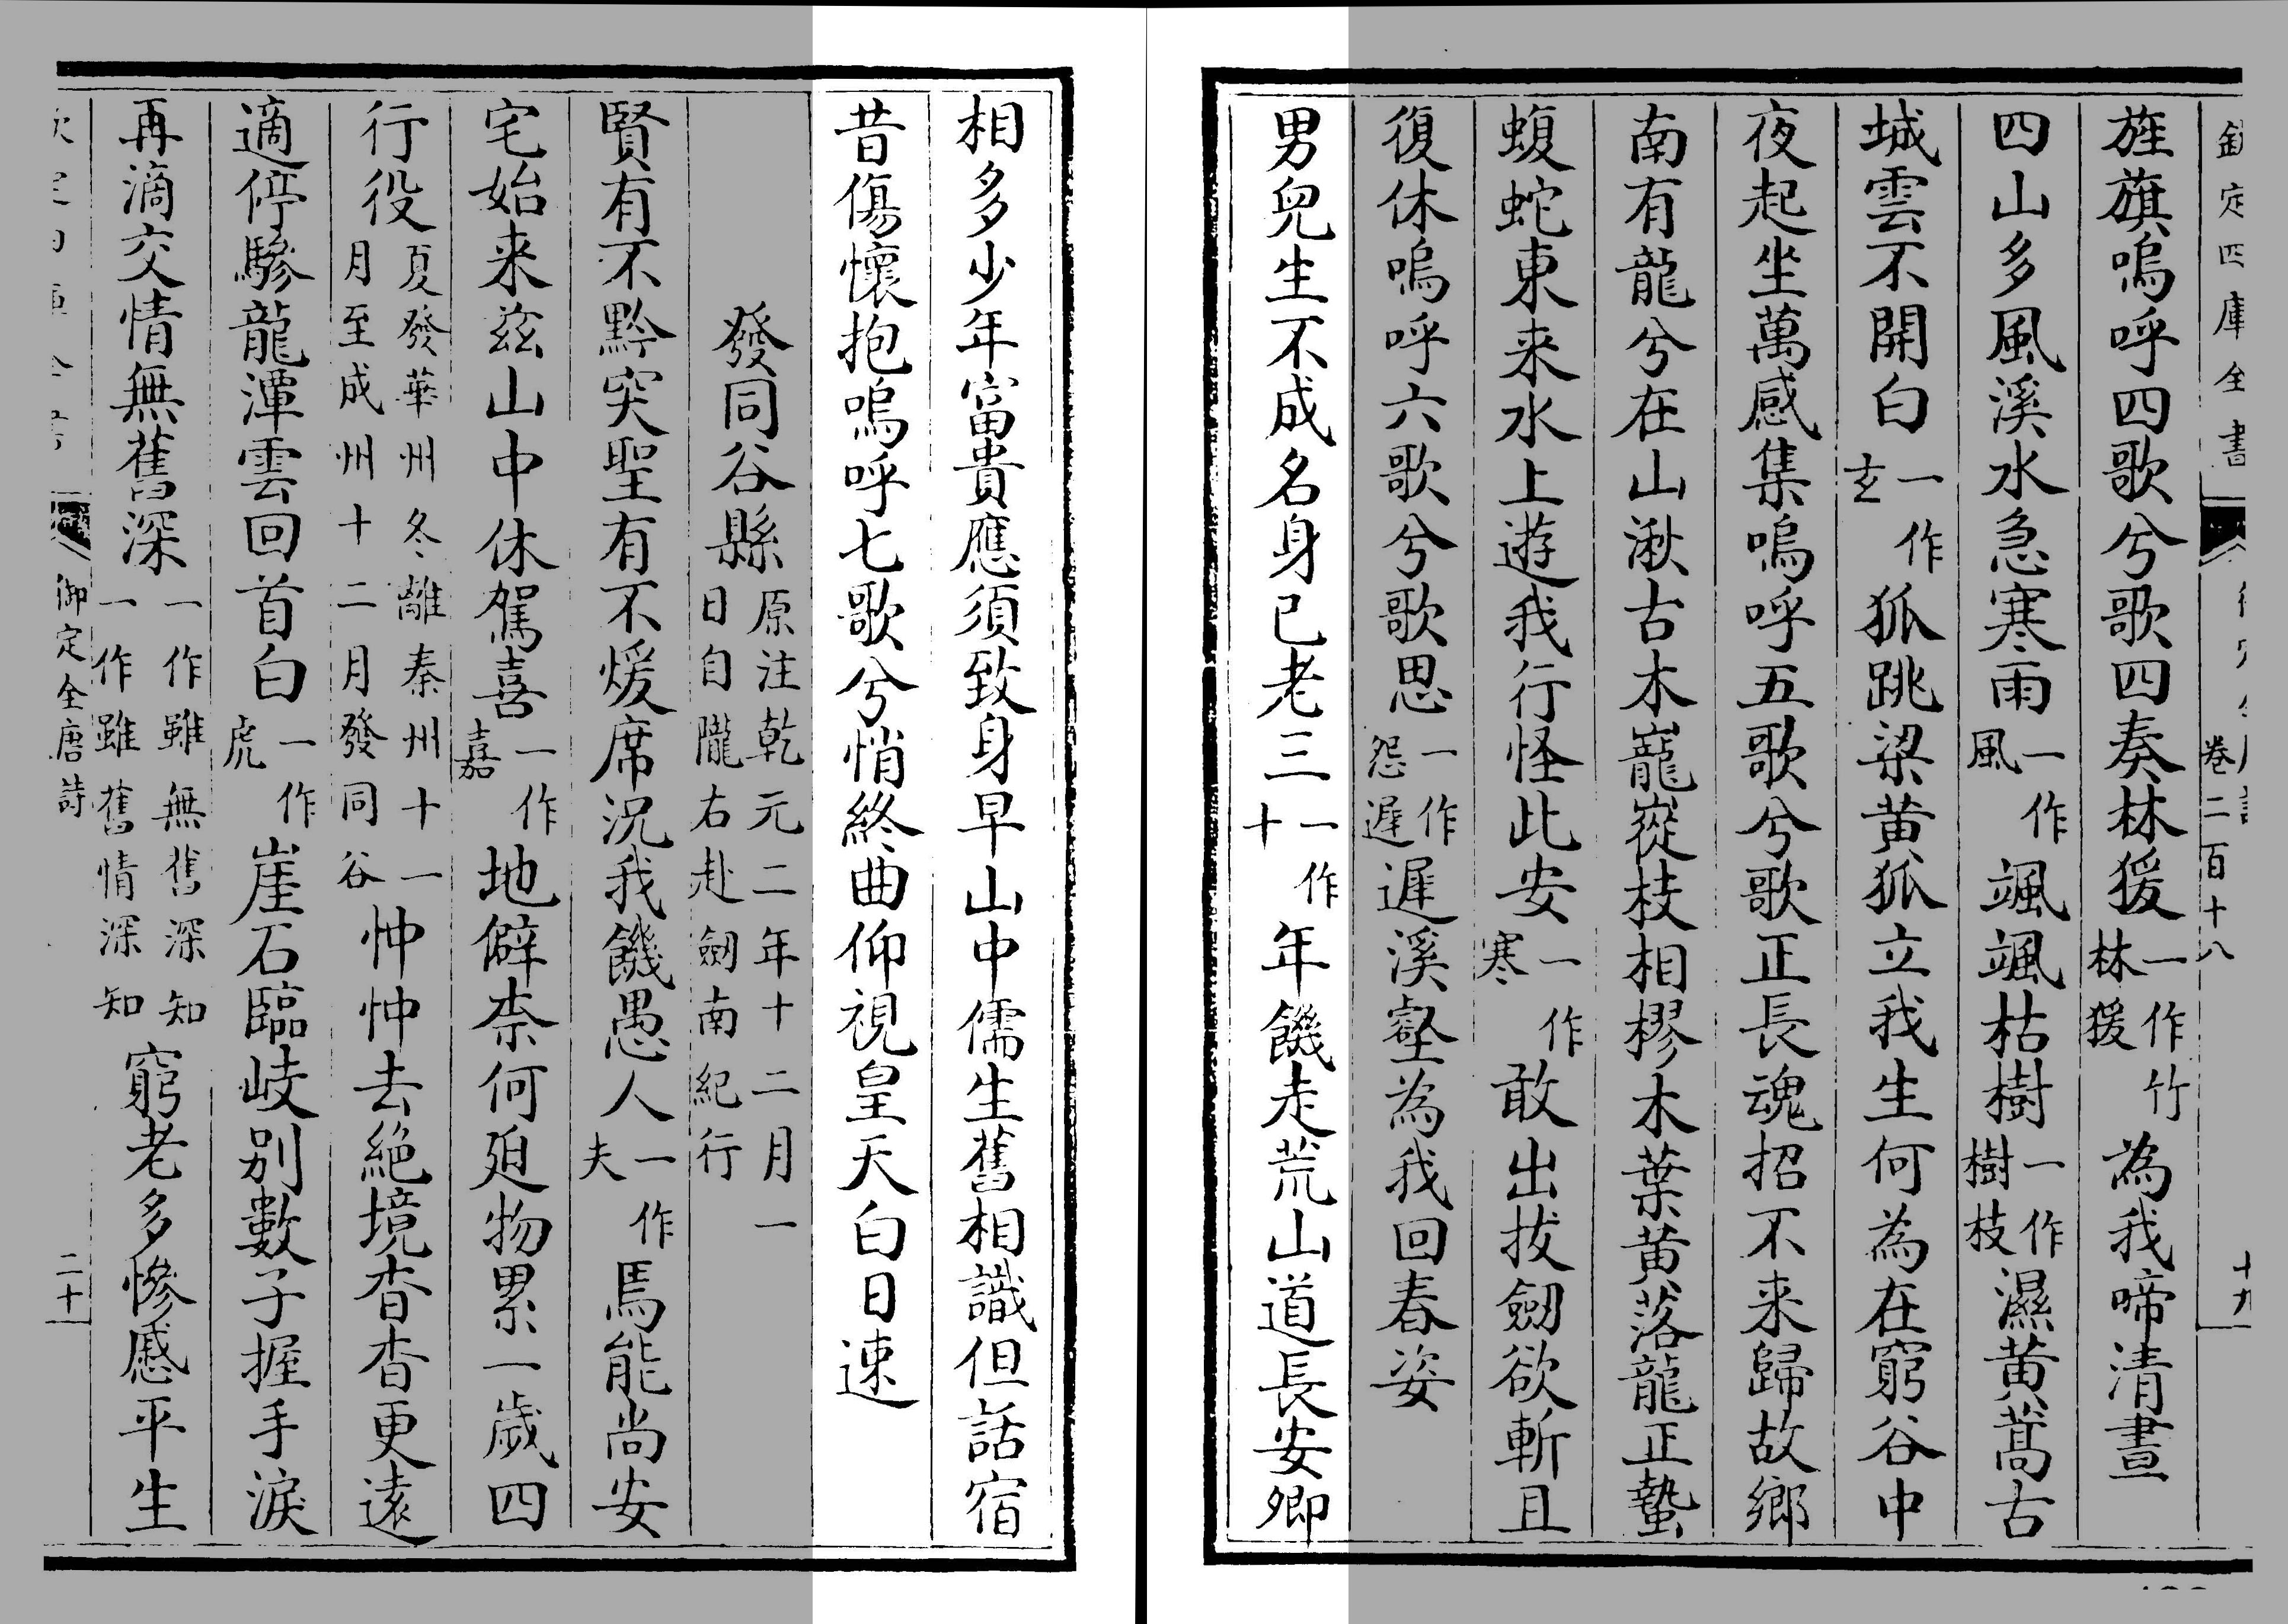 欽定四庫全書 卷二百十八 十九
旌旗嗚呼四歌兮歌四奏林猨一作竹林猨為我啼清晝
四山多風溪水急寒雨一作風颯颯枯樹一作樹枝濕黃蒿古
城雲不開白一作玄狐跳梁黃狐立我生何為在窮谷中
夜起坐萬感集嗚呼五歌兮歌正長魂招不来歸故鄉
南有龍兮在山湫古木巃嵸枝相樛木葉黃落龍正蟄
蝮蛇東来水上遊我行怪此安一作寒敢出拔劒欲斬且
復休嗚呼六歌兮歌思一作怨遲遲溪壑為我回春姿
男兒生不成名身已老三一作十年饑走荒山道長安卿
相多少年富貴應須致身早山中儒生舊相識但話宿
昔傷懷抱嗚呼七歌兮悄終曲仰視皇天白日速
發同谷縣原注乾元二年十二月一日自隴右赴劒南紀行
賢有不黔突聖有不煖席況我饑愚人一作夫焉能尚安
宅始来茲山中休駕喜一作嘉地僻柰何廹物累一歲四
行役夏發華州冬離秦州十一月至成州十二月發同谷忡忡去絶境杳杳更遠
適停驂龍潭雲回首白一作虎崖石臨岐別數子握手淚
再滴交情無舊深一作雖無舊深知一作雖舊情深知窮老多慘慼平生
御定全唐詩 二十